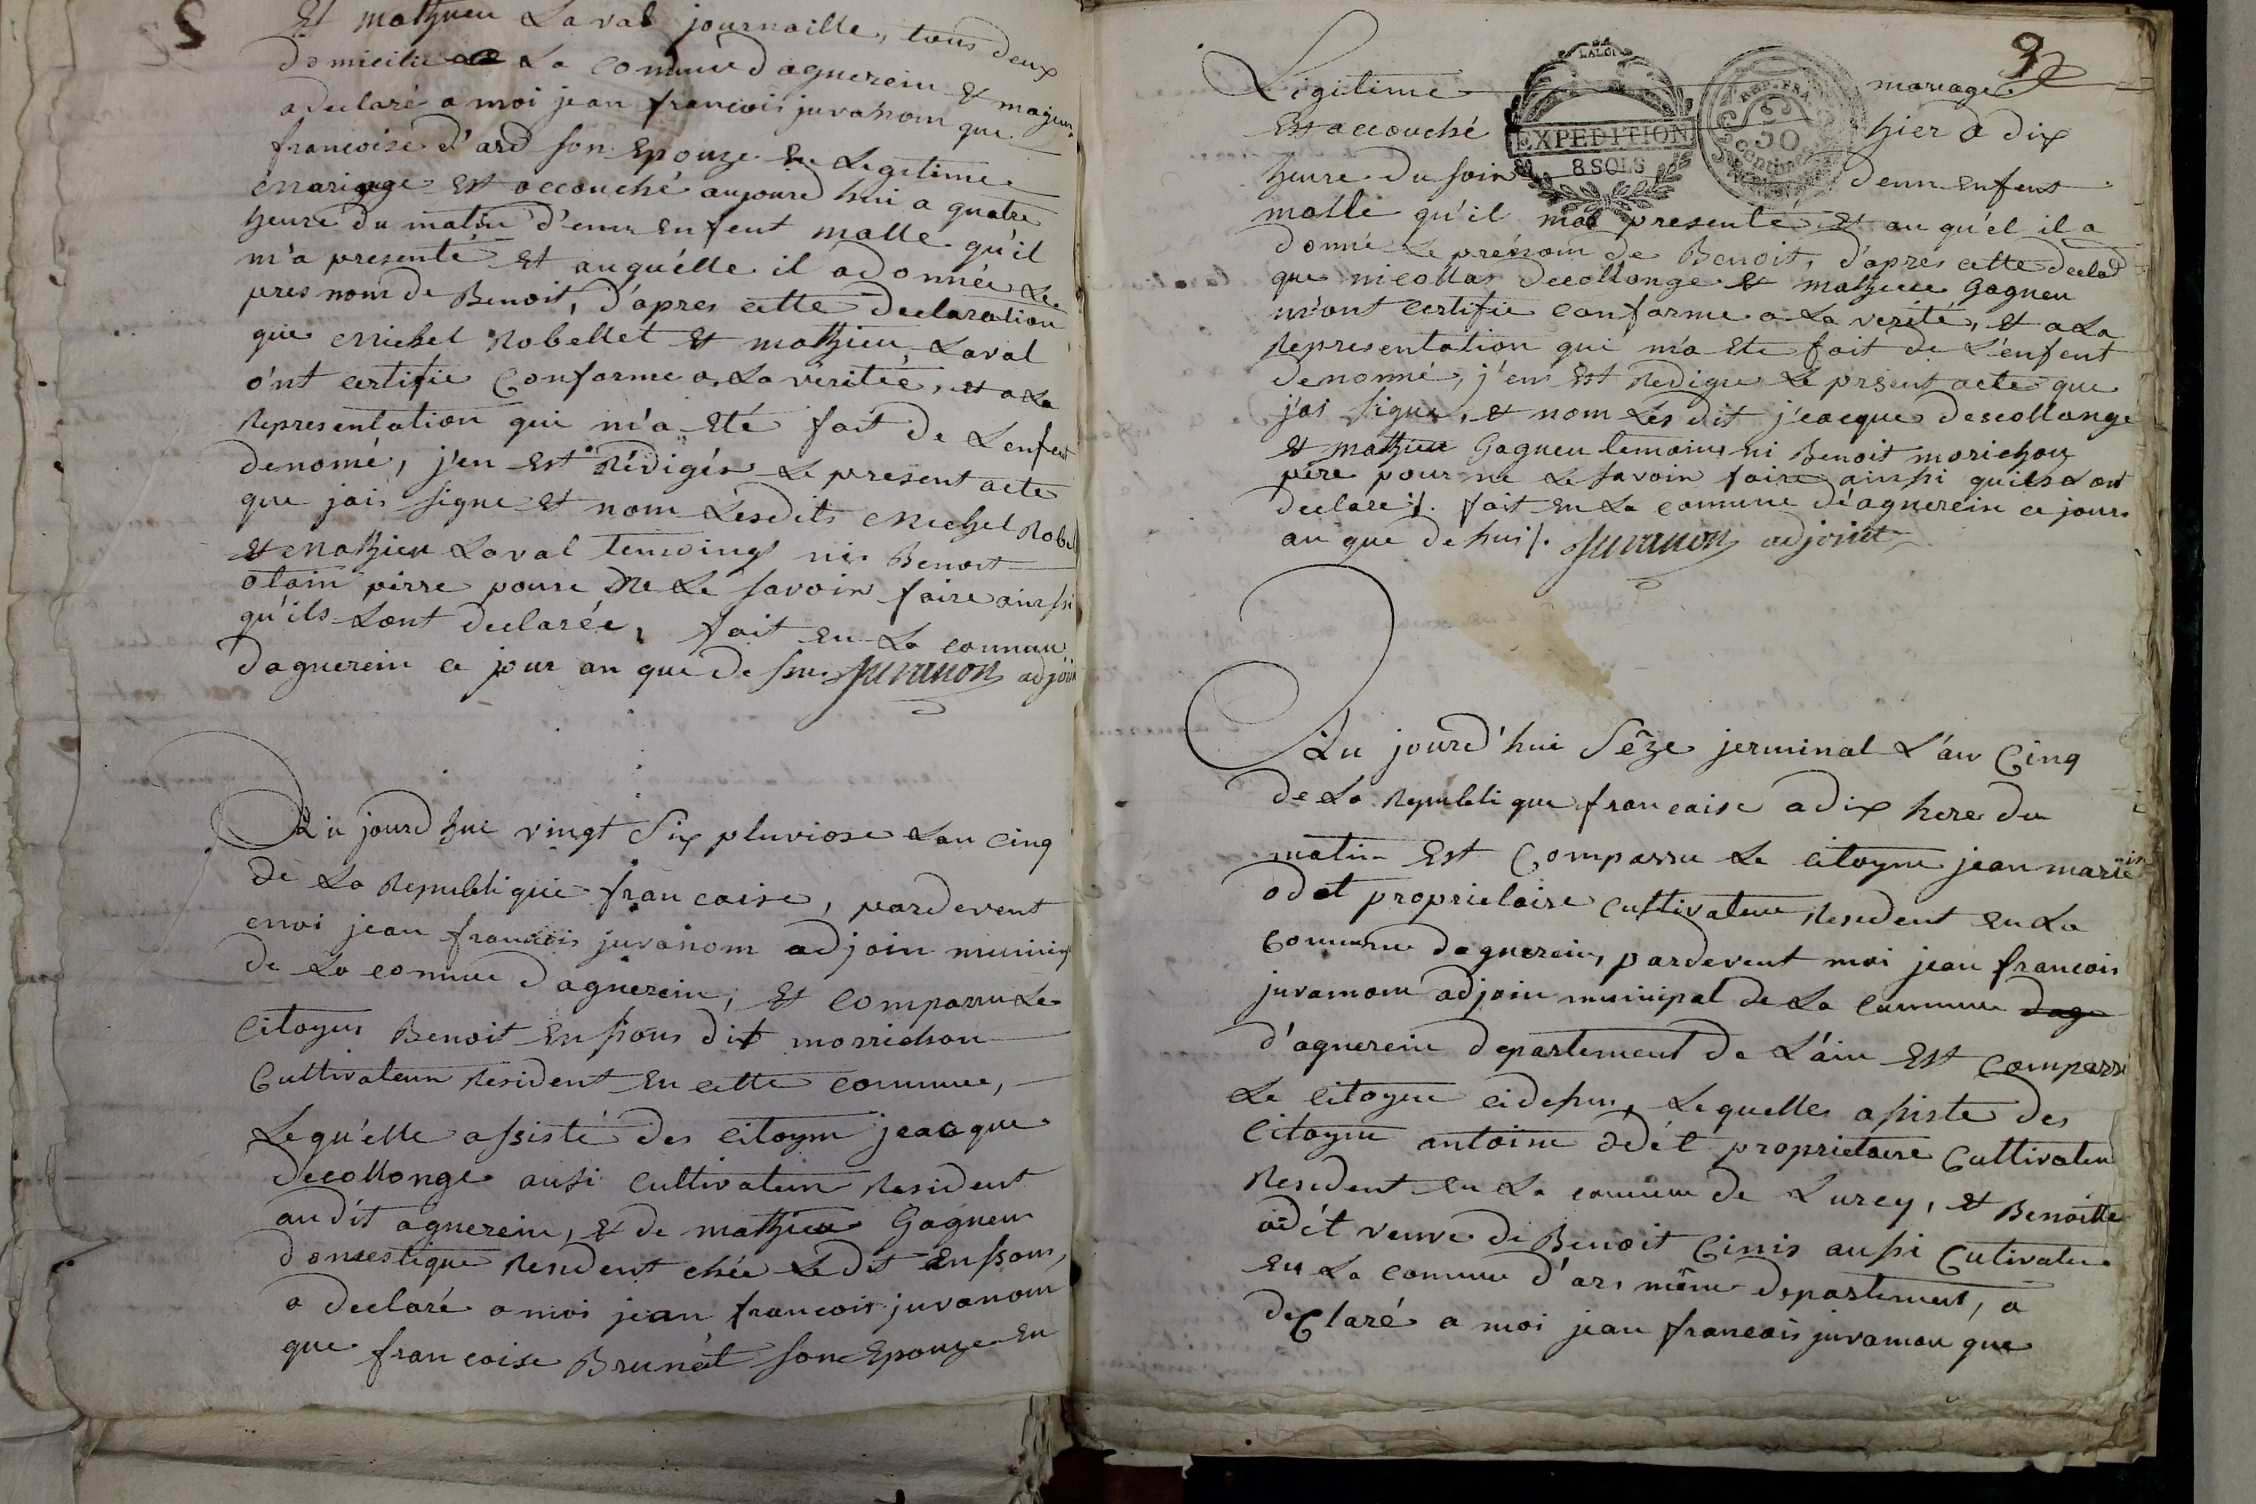 Et mathieu Laval journaille, tous deux
domicilie La commune d'aguerein Et majeur
a declaré a moi jean francois juvanom que
francoise d'ard son Epouze En Legitime
mariage Est accouché aujourd hui a quatre
heure du matin d'eun Enfent malle qu'il
m'a presenté Et auquélle il a donnée Le
pres nom de Benoit, d'apres cette declaration
que Michel Robellet Et mathieu Laval
o'nt certifie Conforme a La véritée, et a La
Representation qui m'a Eté fait de L'enfent
denomé, j'en Est Rédigér Le present acte
que jais signe Et nom Lésdits Michel Robel
Et Mathieu Laval temoings ni Benoit
pérre poure Ne Le savoir faire ainssi
qu'ils Lont declarée, fait En La commune
daguerein ce jour an que de ssus juvanon adjoin
Au jourd hui vingt Six pluviose Lan cinq
de La Republique francaise, pardevent
moi jean francois juvanom adjoin municip
de La commune d'aguerein, Et comparru Le
Citoyen Benoit dit morrichon
Cultivateur Resident En cette commune,
Lequ'elle assisté des citoyen jeacque
decollonge aussi cultivateur Resident
audit aguerein, Et de mathieu Gagneu
domestique Resident chée Le dit
a declaré a moi jean francois juvanom
que francoise Brunét son Epouze En
9
Legitime mariage
Est accouché hier a dix
heure du soir d'eun Enfent
malle qu'il mas presenté Et au qu'el il a
donné Le prénom de Benoit, d'apres cette declad
que nicollas decollonge Et mathieu Gagneu
m'ont certifie conforme a La verité, Et a La
Representation qui m'a Ete fait de L'enfent
denommé, j'en Est Redigee Le present acte que
j'ai signe, Et nom Lés dit jeacque descollonge
Et mathieu Gagneu temoins ni Benoit morichon
pére pour ne Le savoir faire ainssi quils Lont
declare ./. fait En La comune d'aguerein ce jour
an que de hui ./. juvanon adjoint
EXPEDITION
8 SOLS
REP. FRA.
50
Centimes
Au jourd'hui Sêze jerminal L'an Cinq
de La Republique francaise a dix here du
matin Est Comparru Le citoyen jean marie
odet proprietaire cultivateur Resident En La
Commune daguerein, pardevent moi jean francois
juvamom adjoin municipal de La Commune dag
d'aguerein departement de L'ain Est comparru
Le citoyen cidessu, Le quelle assiste des
Citoyen antoine odét proprietaire Cultivateu
Resident En La commune de Lurcy, Et Benoitte
odét veuve de Benoit Cinis aussi Cultivateu
En La commune d'ars même departement, a
declaré a moi jean francois juvamon que